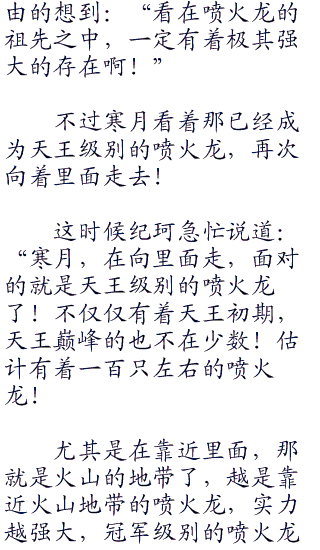 由的想到：“看在喷火龙的
祖先之中，一定有着极其强
大的存在啊！”
不过寒月看着那已经成
为天王级别的喷火龙，再次
向着里面走去！
这时候纪珂急忙说道：
“寒月，在向里面走，面对
的就是天王级别的喷火龙
了！不仅仅有着天王初期，
天王巅峰的也不在少数！估
计有着一百只左右的喷火
龙！
尤其是在靠近里面，那
就是火山的地带了，越是靠
近火山地带的喷火龙，实力
越强大，冠军级别的喷火龙